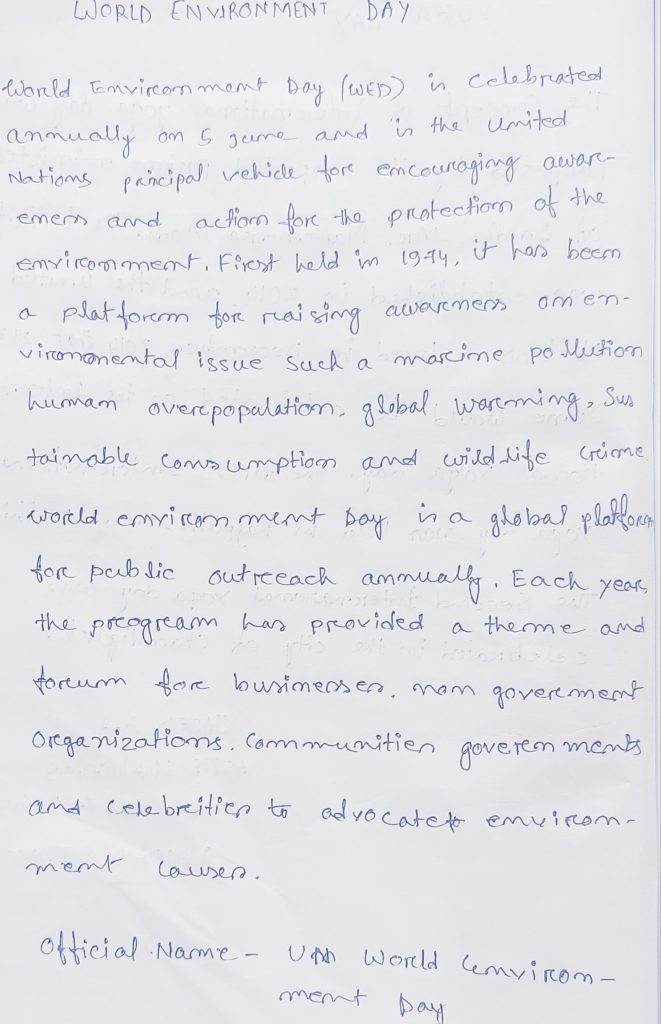 WORLD ENVIRONMENT DAY
World Environment Day (WED) is celebrated
annually on 5 june and is the United
Nations principal vehicle for encouraging aware-
eness and action for the protection of the
environment. First held in 1974, it has been
a platform for raising awareness on en-
vironmental issue such a marine pollution
human overpopulation, global warming, Sus
tainable consumption and wildlife crime
world environment Day is a global platform
for public outreach annually. Each year,
the program has provided a theme and
forum for businesses, non goverement
Organizations. Communities governments
and celebrities to advocate environ-
ment causes.
Official Name - UN World Environ-
ment Day